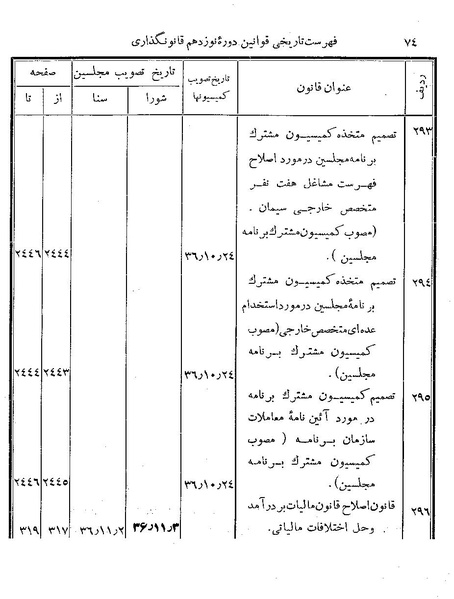 ۷۴ فهرست تاریخی قوانین دورهٔ نوزدهم قانونگذاری
ردیف عنوان قانون تاریخ تصویب کمیسیونها تاریخ تصویب مجلسین صفحه
شورا سنا از تا
۲۹۳ تصمیم متخذه کمیسیون مشترك
برنامه مجلسین در مورد اصلاح
فهرست مشاغل هفت نفر
متخصص خارجی سیمان .
(مصوب کمیسیون مشترك برنامه
مجلسین ). ۳۶٫۱۰٫۲۴ ۲۴۴۴ ۲۴۴۶
۲۹۴ تصمیم متخذه کمیسیون مشترك
برنامهٔ مجلسین در مورد استخدام
عده‌ای متخصص خارجی (مصوب
کمیسیون مشترك برنامه
مجلسین). ۳۶٫۱۰٫۲۴ ۲۴۴۳ ۲۴۴۴
۲۹۵ تصمیم کمیسیون مشترك برنامه
در مورد آئین نامهٔ معاملات
سازمان برنامه ( مصوب
کمیسیون مشترك برنامه
مجلسین). ۳۶٫۱۰٫۲۴ ۲۴۴۵ ۲۴۴۶
۲۹۶ قانون اصلاح قانون مالیات بر درآمد
وحل اختلافات مالیاتی. ۳۶٫۱۱٫۳ ۳۶٫۱۱٫۲ ۳۱۷ ۳۱۹